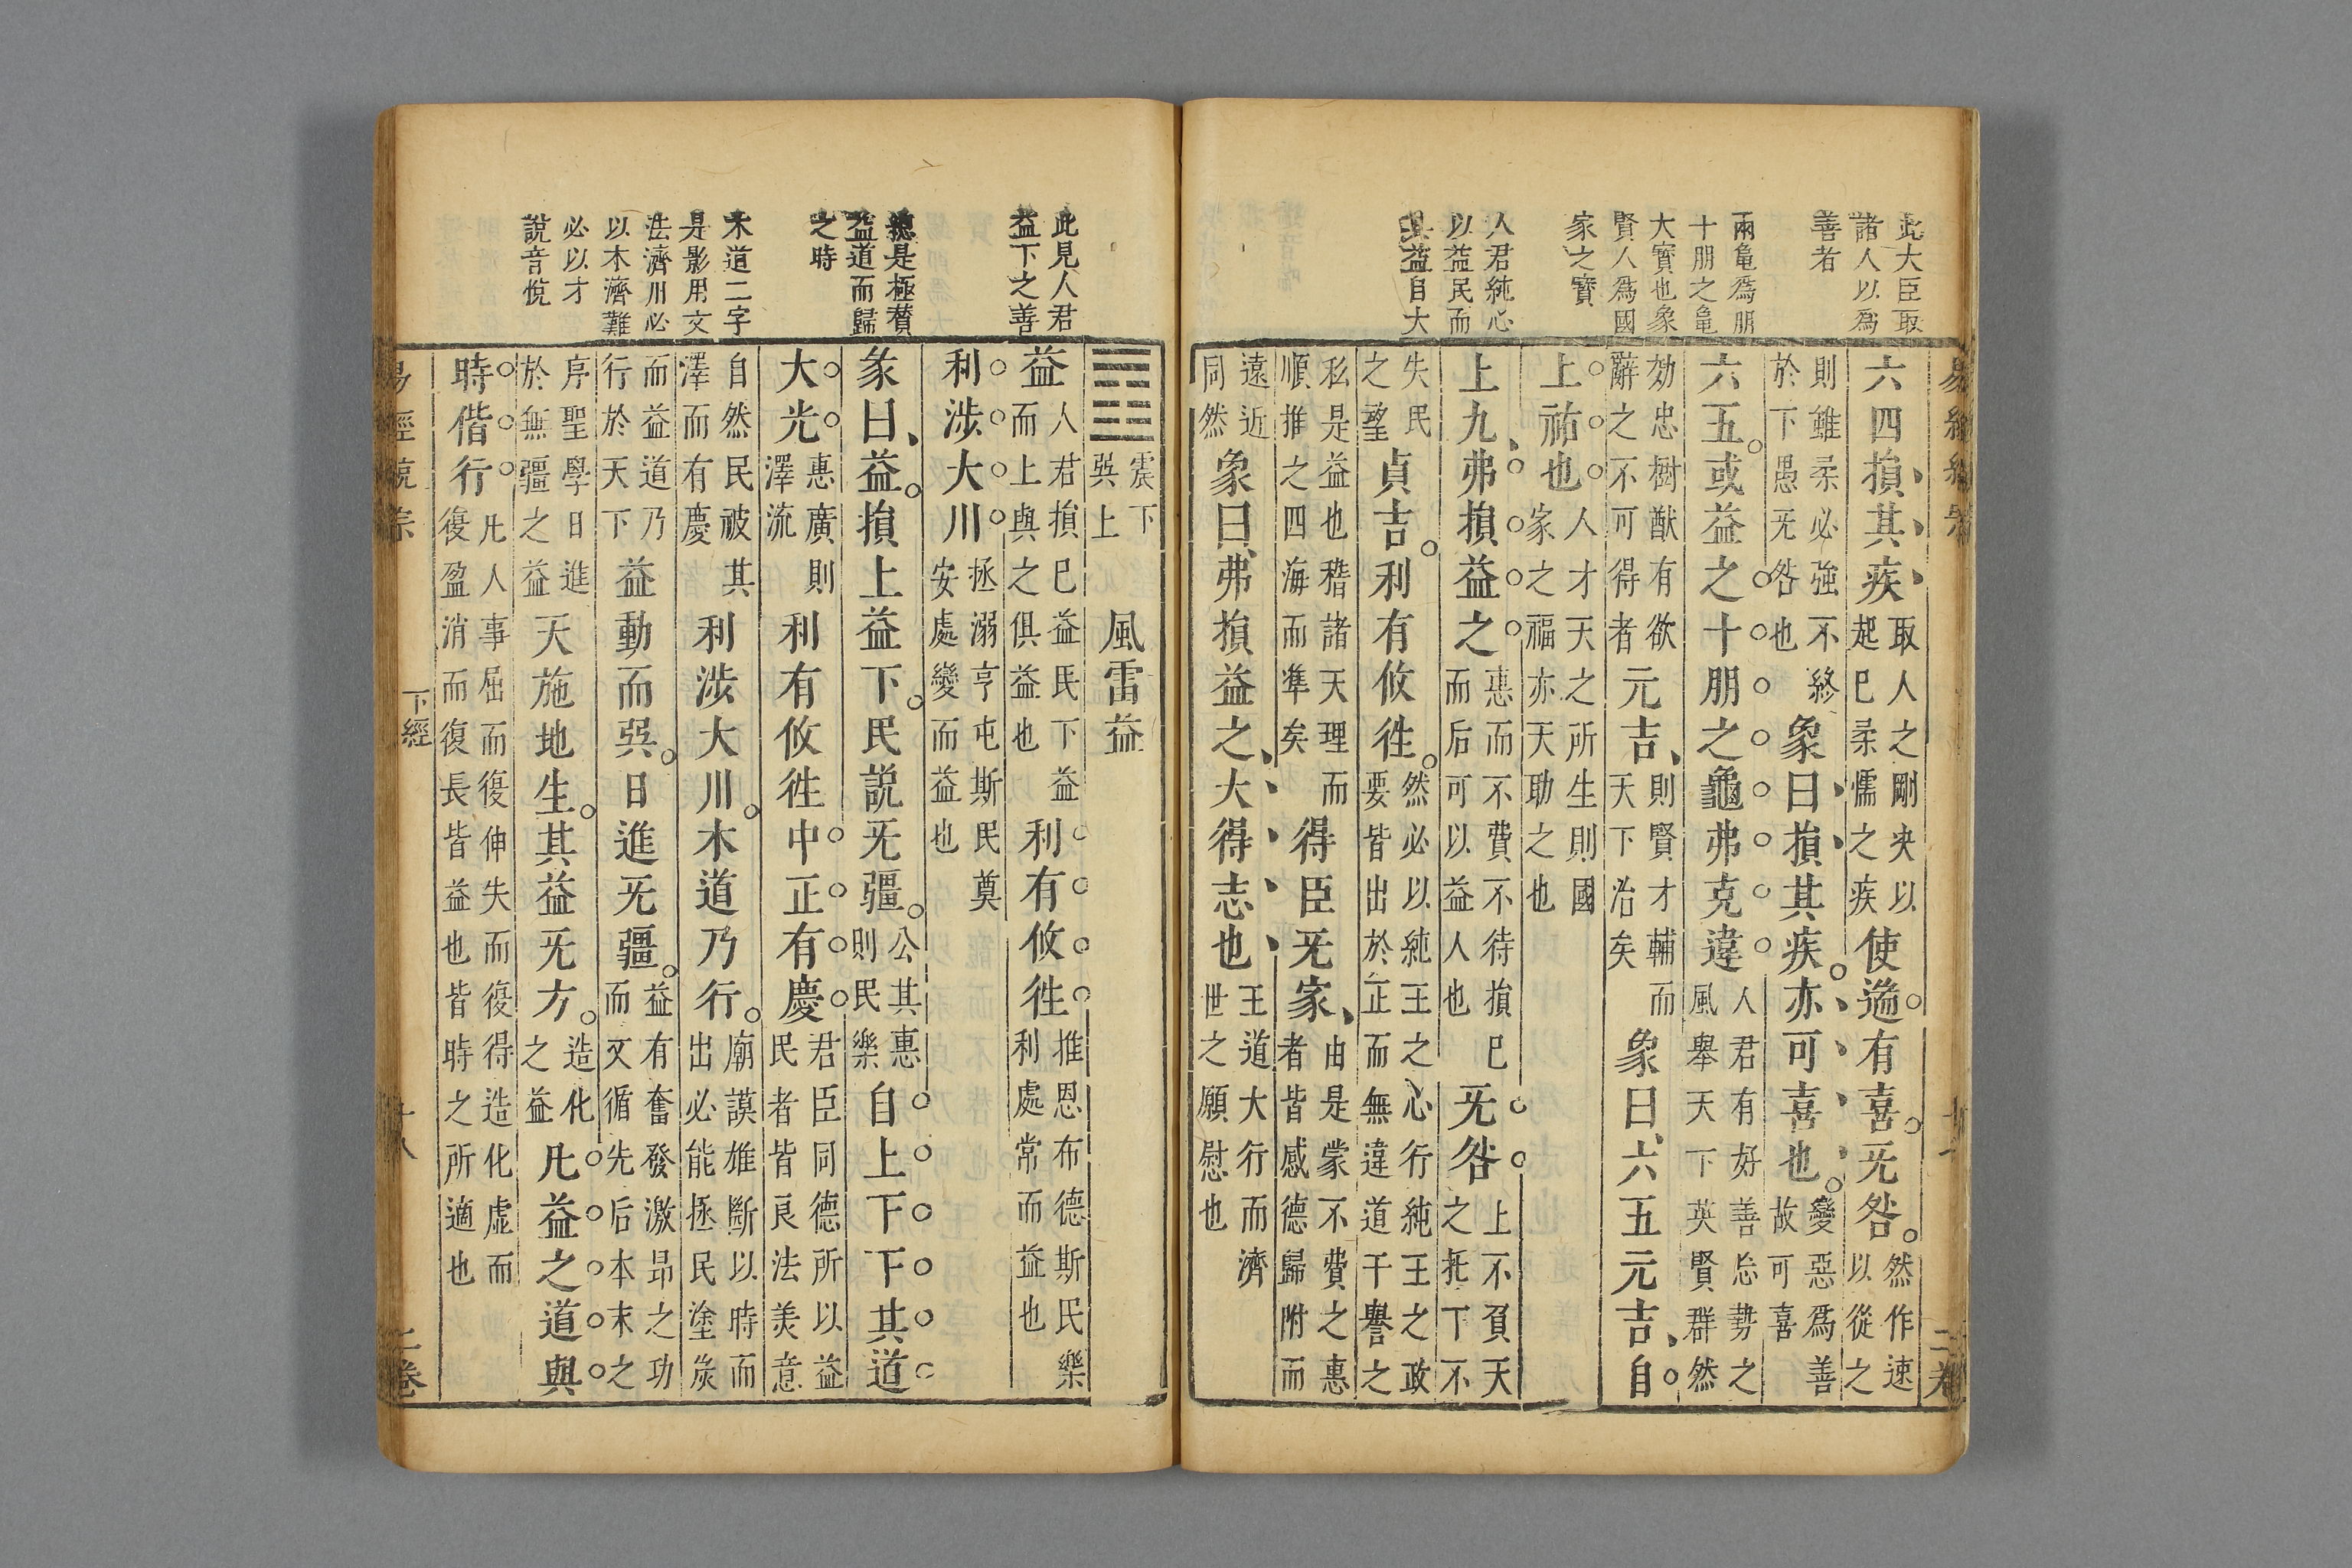 此大臣取
諸人以為
善者
兩龜為朋
十朋之龜
大寶也象
賢人為國
家之寶
人君純心
以益民而
其益自大
六四損其疾取人之剛夬以起已柔懦之疾使遄有喜无咎然作速以從之
則雖柔必強不終於下愚无咎也象曰損其疾亦可喜也變惡為善故可喜
六五或益之十朋之龜弗克違人君有好善忘勢之風舉天下英賢群然
効忠樹猷有欲辭之不可得者元吉則賢才輔而天下治矣象曰六五元吉自
上祐也人才天之所生則國家之福亦天助之也
上九弗損益之惠而不費不待損已而后可以益人也无咎上不負天之托下不
失民之望貞吉利有攸徃然必以純王之心行純王之政要皆出於正而無違道干譽之
私是益也稽諸天理而順推之四海而準矣得臣无家由是蒙不費之惠者皆感德歸附而
遠近同然象曰弗損益之大得志也王道大行而濟世之願慰也
此見人君
益下之善
總是極賛
益道而歸
之時
木道二字
是影用文
法濟川必
以木濟難
必以才
說音悅
震下巽上風雷益
益人君損已益民下益而上與之俱益也利有攸徃推恩布德斯民樂利處常而益也
利涉大川拯溺亨屯斯民奠安處變而益也
彖曰益損上益下民說无疆公其惠則民樂自上下下其道
大光惠廣則澤流利有攸徃中正有慶君臣同德所以益民者皆良法美意
自然民被其澤而有慶利涉大川木道乃行廟謨雄斷以時而出必能拯民塗炭
而益道乃行於天下益動而巽日進无疆益有奮發激昂之功而又循先后本末之
序聖學日進於無疆之益天施地生其益无方造化之益凡益之道與
時偕行凡人事屈而復伸失而復得造化虛而復盈消而復長皆益也皆時之所適也
易經說宗
下經
十八
二卷